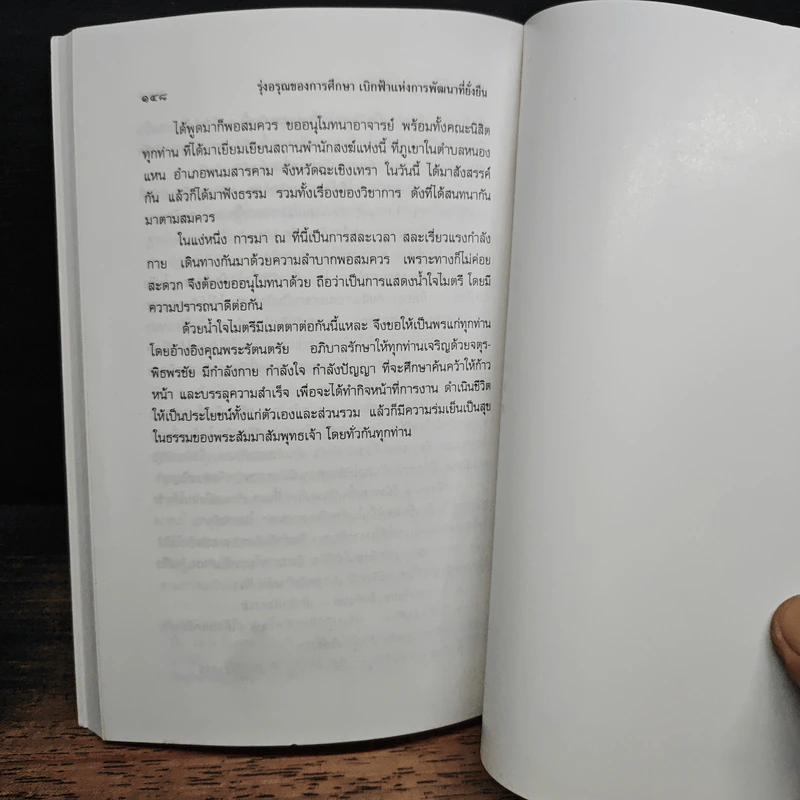 ๑๔๘ รุ่งอรุณของการศึกษา เบิกฟ้าแห่งการพัฒนาที่ยั่งยืน
ได้พูดมาก็พอสมควร ขออนุโมทนาอาจารย์ พร้อมทั้งคณะนิสิต
ทุกท่าน ที่ได้มาเยี่ยมเยียนสถานพำนักสงฆ์แห่งนี้ ที่ภูเขาในตำบลหนอง
แหน อำเภอพนมสารคาม จังหวัดฉะเชิงเทรา ในวันนี้ ได้มาสังสรรค์
กัน แล้วก็ได้มาฟังธรรม รวมทั้งเรื่องของวิชาการ ดังที่ได้สนทนากัน
มาตามสมควร
ในแง่หนึ่ง การมา ณ ที่นี้เป็นการสละเวลา สละเรี่ยวแรงกำลัง
กาย เดินทางกันมาด้วยความลำบากพอสมควร เพราะทางก็ไม่ค่อย
สะดวก จึงต้องขออนุโมทนาด้วย ถือว่าเป็นการแสดงน้ำใจไมตรี โดยมี
ความปรารถนาดีต่อกัน
ด้วยน้ำใจไมตรีมีเมตตาต่อกันนี้แหละ จึงขอให้เป็นพรแก่ทุกท่าน
โดยอ้างอิงคุณพระรัตนตรัย อภิบาลรักษาให้ทุกท่านเจริญด้วยจตุร-
พิธพรชัย มีกำลังกาย กำลังใจ กำลังปัญญา ที่จะศึกษาค้นคว้าให้ก้าว
หน้า และบรรลุความสำเร็จ เพื่อจะได้ทำกิจหน้าที่การงาน ดำเนินชีวิต
ให้เป็นประโยชน์ทั้งแก่ตัวเองและส่วนรวม แล้วก็มีความร่มเย็นเป็นสุข
ในธรรมของพระสัมมาสัมพุทธเจ้า โดยทั่วกันทุกท่าน